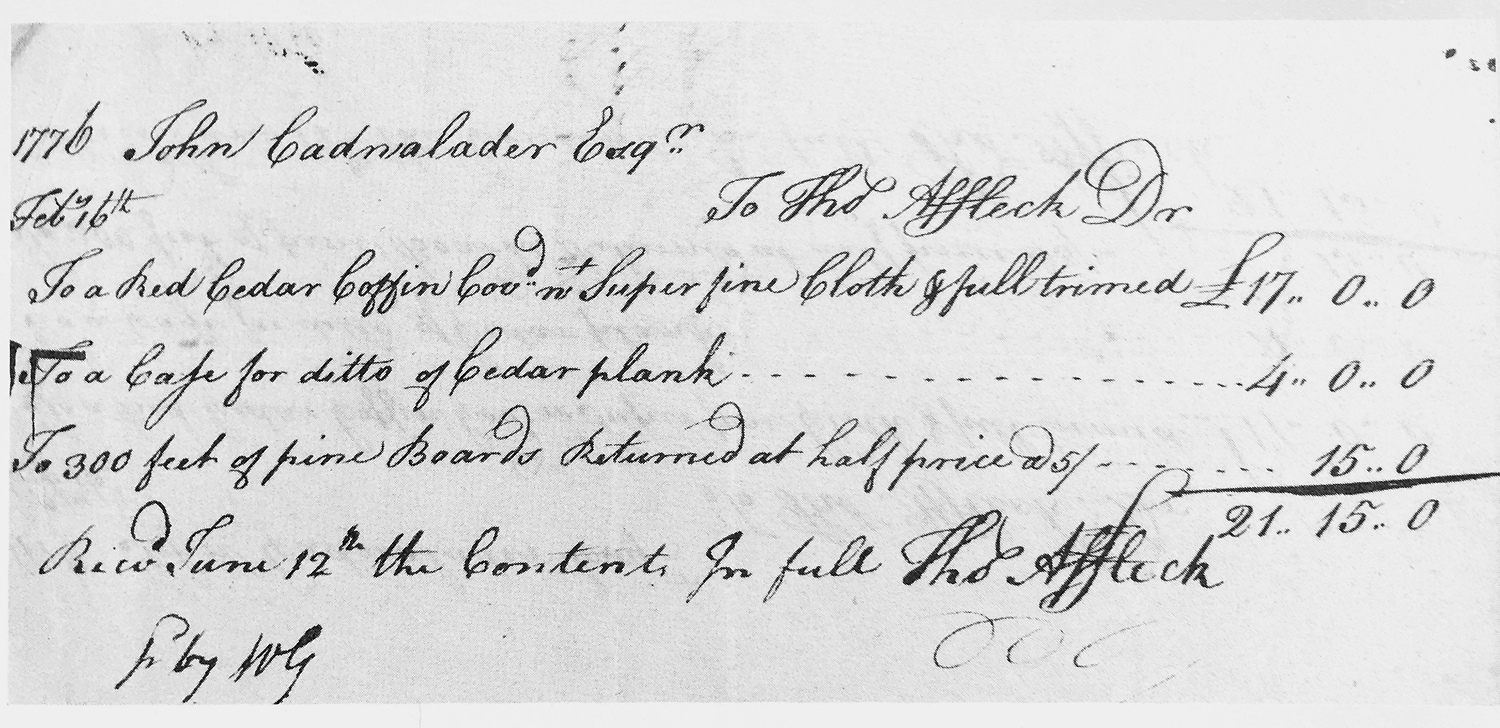 1776 John Cadwalader Esqr
Feby 16th To Thos Affleck Dr
To a Red Cedar Coffin Covd wt Super fine Cloth & full trimed £17.. 0.. 0
To a Case for ditto of Cedar plank - - - - - - - - 4.. 0.. 0
To 300 feet of pine Boards Returned at half price @ 5/ - - - - - - 15.. 0
£21.. 15.. 0
Recd June 12th the Contents In full Thos Affleck
pr by WG